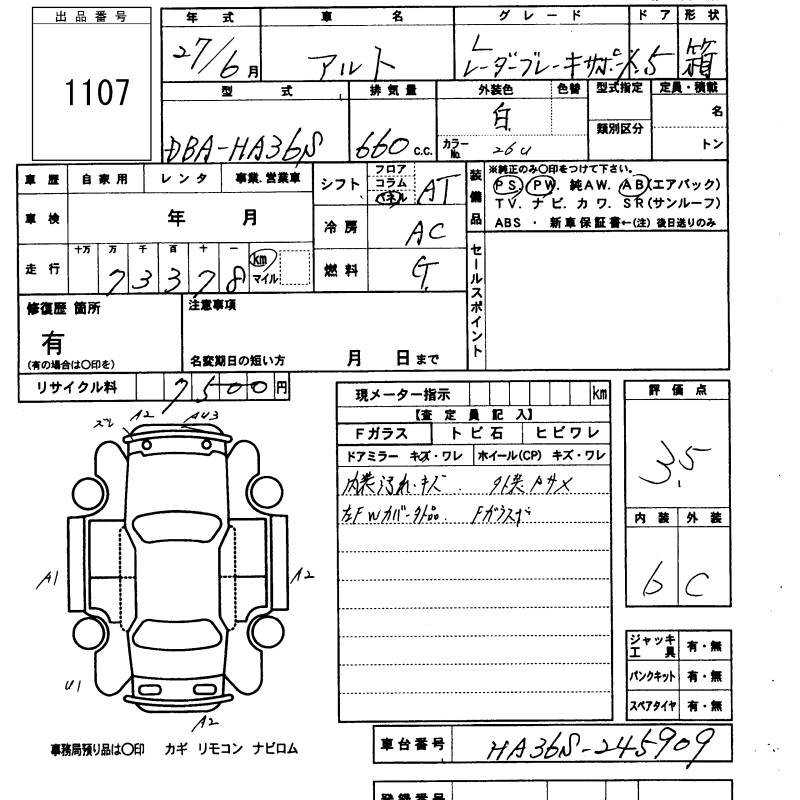 出品番号
1107
年式 車名 グレード ドア 形状
27/6月 アルト L レーダーブレーキサポート 5 箱
型式 排気量 外装色 色替 型式指定 定員・積載
DBA-HA36S 660 c.c. 白 類別区分 名
カラーNo. 26U トン
車歴 自家用 レンタ 事業.営業車
車検 年 月
走行 十万 万 千 百 十 一
73378 km マイル
シフト フロア コラム パネル AT
冷房 AC
燃料 G
装備品
※純正のみ〇印をつけて下さい。
PS. PW. 純AW. AB(エアバック)
TV. ナビ. カワ. SR(サンルーフ)
ABS ・ 新車保証書←(注) 後日送りのみ
セールスポイント
修復歴 箇所
有
(有の場合は〇印を)
注意事項
名変期日の短い方 月 日まで
リサイクル料 7500円
ズレ A2 AU3
A1 A2
U1 A2
事務局預り品は〇印 カギ リモコン ナビロム
現メーター指示 km
【査定員記入】
Fガラス トビ石 ヒビワレ
ドアミラー キズ・ワレ ホイール(CP) キズ・ワレ
内装汚れ・キズ. 外装
左FWカバー欠品. Fガラス
評価点
3.5
内装 外装
b C
ジャッキ工具 有・無
パンクキット 有・無
スペアタイヤ 有・無
車台番号 HA36S-245909
登録番号